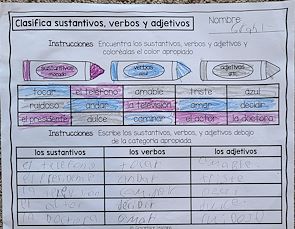 Clasifica sustantivos, verbos y adjetivos
Nombre:
Instrucciones: Encuentra los sustantivos, verbos, y adjetivos y
coloréalas el color apropiado.
sustantivos verbos adjetivos
morado azul gris
tocar el teléfono amable triste azul
ruidoso andar la televisión amar decidir
el presidente dulce caminar el actor la doctora
Instrucciones: Escribe los sustantivos, verbos, y adjetivos debajo
de la categoría apropiada.
los sustantivos los verbos los adjetivos
el teléfono tocar amable
el presidente andar triste
la televisión caminar azul
el actor decidir dulce
la doctora amar ruidoso